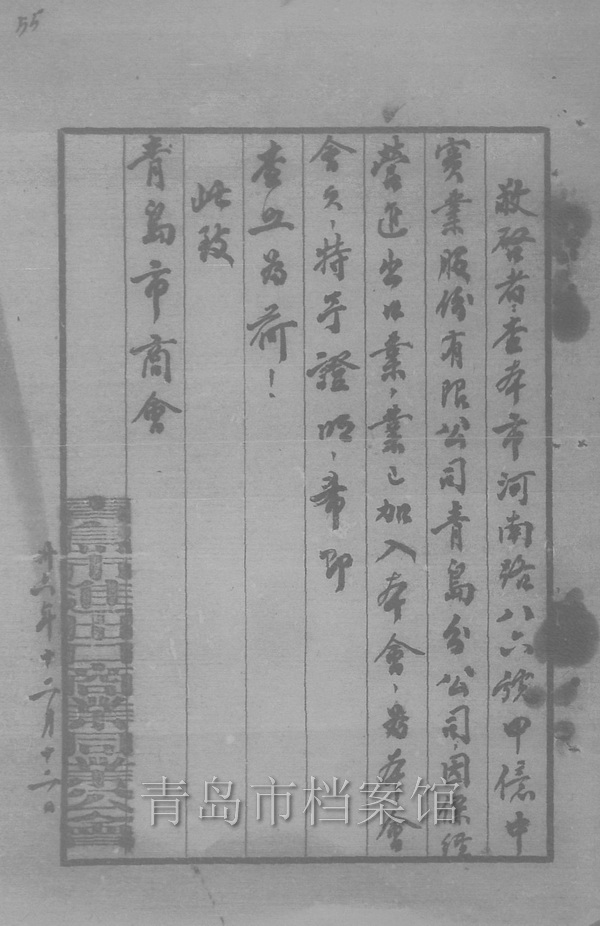 55
敬啓者：查本市河南路八六號甲億中
實業股份有限公司青島分公司，因係經
營進出口業，業已加入本會，為本會
會員，特予證明，希即
查照為荷！
此致
青島市商會
青島市進出口商業同業公會
卅六年十二月十二日
青岛市档案馆